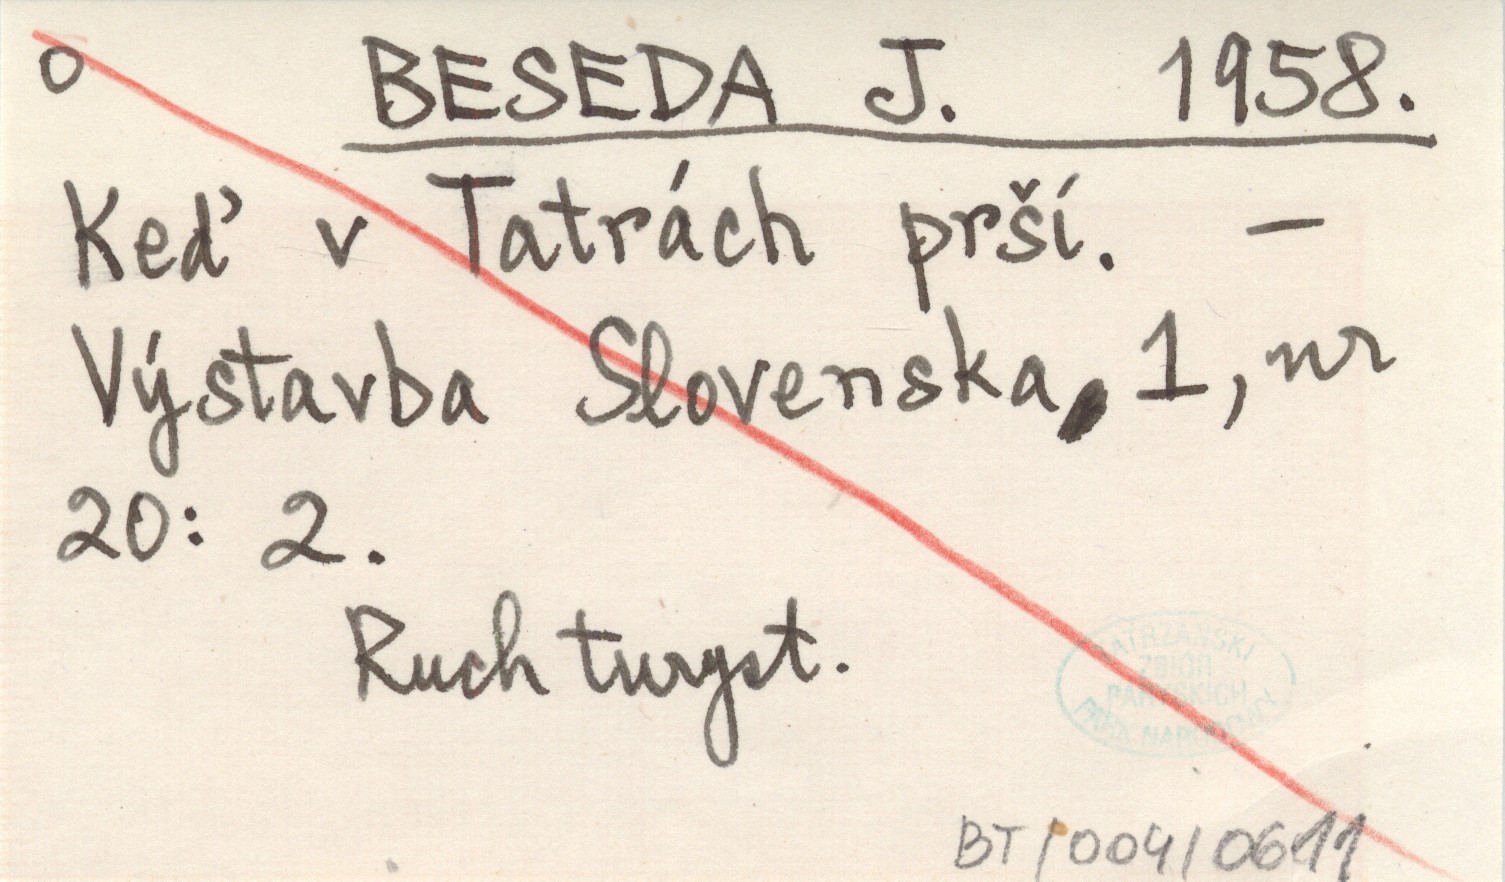 o BESEDA J. 1958.
Keď v Tatrách prší. –
Výstavba Slovenska, 1, nr
20: 2.
Ruch turyst.
TATRZAŃSKI
ZBIÓR
PARYSKICH
PARK NARODOWY
BT/004/0611